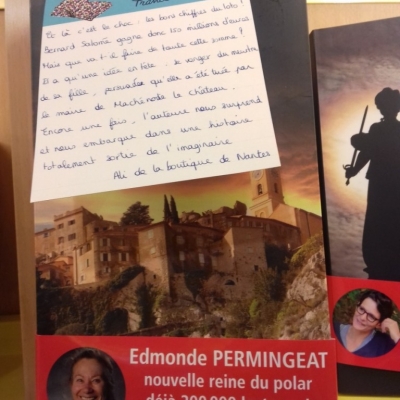 France
Et là c'est le choc : les bons chiffres du loto !
Bernard Salomé gagne donc 150 millions d'euros
Mais que va t-il faire de toute cette somme ?
Il a qu'une idée en tête : se venger du meurtre
de sa fille, persuadé qu'elle a été tué par
le maire de Machinode le château.
Encore une fois, l'auteure nous surprend
et nous embarque dans une histoire
totalement sortie de l'imaginaire
Ali de la boutique de Nantes
Edmonde PERMINGEAT
nouvelle reine du polar
déjà 200 000